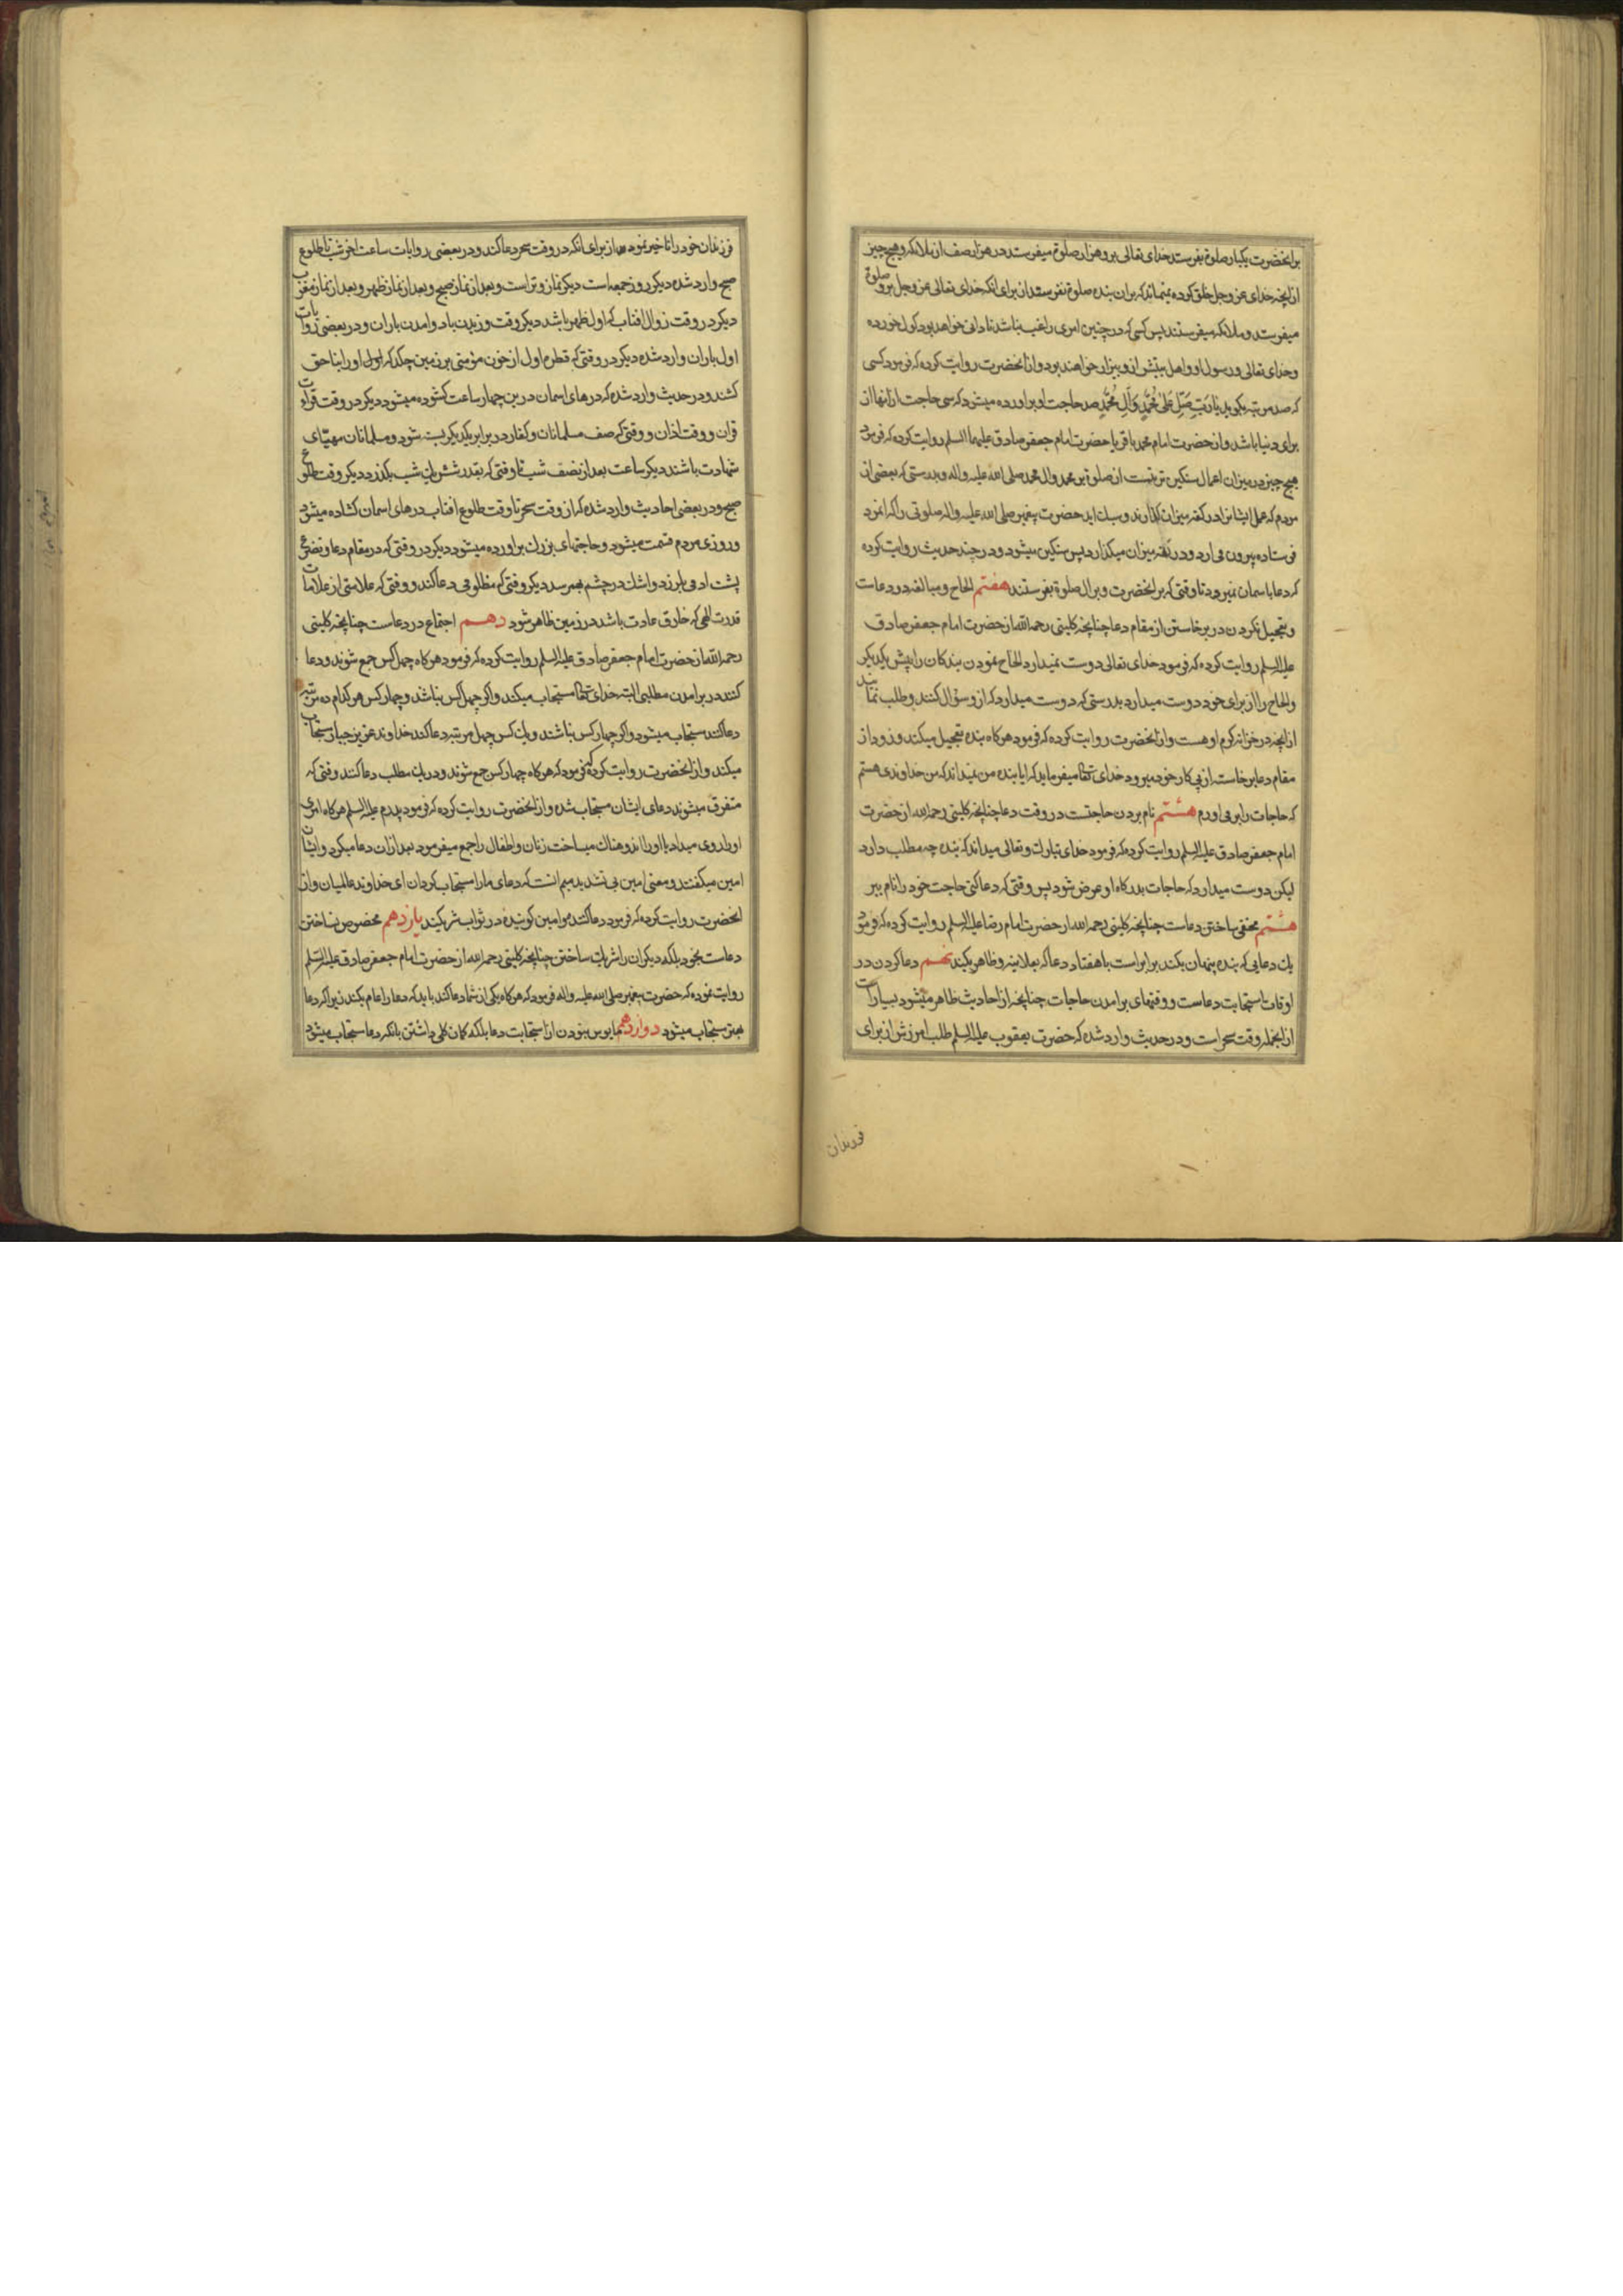 برانحضرت یکبار صلوة بفرستد خدای تعالی برو هزار صلوة میفرستد در هزار صف از ملائکه و هیچ چیز
از انچه خدای عز وجل خلق کرده نمیماند که بران بنده صلوة نفرستد از برای انکه خدای تعالی عز وجل برو صلوة
میفرستد و ملائکه میفرستند پس کسی که در چنین امری راغب نباشد نادانی خواهد بود کول خورده
و خدای تعالی و رسول او و اهل بیتش ازو بیزار خواهند بود و از انحضرت روایت کرده که فرمود کسی
که صد مرتبه بگوید یا رَبِّ صَلِّ عَلیٰ مُحَمَّدٍ وَآلِ مُحَمَّدٍ صد حاجت او براورده میشود که سی حاجت از انها از
برای دنیا باشد و از حضرت امام محمد باقر یا حضرت امام جعفر صادق علیهما السلم روایت کرده که فرمود
هیچ چیز در میزان اعمال سنکین تر نیست از صلوة بر محمد وال محمد صلی الله علیه واله و بدرستی که بعضی از
مردم که عمل ایشانرا در کفه میزان کذارند و سبک اید حضرت پیغمبر صلی الله علیه واله صلوتی را که انمرد
فرستاده بیرون می ارد و در کفه میزان میکذارد پس سنکین میشود و در چند حدیث روایت کرده
که دعا باسمان نمیرود تا وقتی که برانحضرت و برال صلوة بفرستند هفتم الحاح و مبالغه در دعاست
و تعجیل نکردن در برخاستن از مقام دعا چنانچه کلینی رحمه الله از حضرت امام جعفر صادق
علیه السلم روایت کرده که فرمود خدای تعالی دوست نمیدارد الحاح نمودن بندکان را پیش یکدیکر
و الحاح را از برای خود دوست میدارد بدرستی که دوست میدارد که ازو سؤال کنند و طلب نمایند
از انچه در خزانه کرم او هست و از انحضرت روایت کرده که فرمود هرکاه بنده تعجیل میکند و زود از
مقام دعا برخاسته از پی کار خود میرود خدای تعالی میفرماید که ایا بنده من نمیداند که من خداوندی هستم
که حاجات را بر می اورم هشتم نام بردن حاجتست در وقت دعا چنانچه کلینی رحمه الله از حضرت
امام جعفر صادق علیه السلم روایت کرده که فرمود خدای تبارک و تعالی میداند که بنده چه مطلب دارد
لیکن دوست میدارد که حاجات بدرکاه او عرض شود پس وقتی که دعا کنی حاجت خود را نام ببر
هشتم مخفی ساختن دعاست چنانچه کلینی رحمه الله از حضرت امام رضا علیه السلم روایت کرده که فرمود
یک دعایی که بنده پنهان بکند برابر است با هفتاد دعا که بعلانیه و ظاهر بکند نهم دعا کردن در
اوقات استجابت دعاست و وقتهای برامدن حاجات چنانچه از احادیث ظاهر میشود بسیار است
از انجمله وقت سحر است و در حدیث وارد شده که حضرت یعقوب علیه السلم طلب امرزش از برای
فرزندان
فرزندان خود را تاخیر نمود از برای انکه در وقت سحر دعا کند و در بعضی روایات ساعت اخر شب تا طلوع
صبح وارد شده دیکر روز جمعه است دیکر نماز وتر است و بعد از نماز صبح و بعد از نماز ظهر و بعد از نماز مغرب
دیکر در وقت زوال افتاب که اول ظهر باشد دیکر وقت وزیدن باد و امدن باران و در بعضی روایات
اول باران وارد شده دیکر در وقتی که قطره اول از خون مؤمنی بر زمین چکد که اول او را بناحق
کشند و در حدیث وارد شده که درهای اسمان درین چهار ساعت کشوده میشود دیکر در وقت قراءت
قران و وقت اذان و وقتی که صف مسلمانان و کفار در برابر یکدیکر بسته شود و مسلمانان مهیّای
شهادت باشند دیکر ساعت بعد از نصف شب تا وقتی که بقدر شش یک شب بکذرد دیکر وقت طلوع
صبح و در بعضی احادیث وارد شده که از وقت سحر تا وقت طلوع افتاب درهای اسمان کشاده میشود
و روزی مردم قسمت میشود و حاجتهای بزرک براورده میشود دیکر در وقتی که در مقام دعا و تضرع
پشت ادمی بلرزد و اشک در چشم بهم رسد دیکر وقتی که مظلومی دعا کند و وقتی که علامتی از علامات
قدرت الهی که خارق عادت باشد در زمین ظاهر شود دهم اجتماع در دعاست چنانچه کلینی
رحمه الله از حضرت امام جعفر صادق علیه السلم روایت کرده که فرمود هرکاه چهل کس جمع شوند و دعا
کنند در برامدن مطلبی البته خدای تعالی مستجاب میکند و اکر چهل کس نباشند و چهار کس هرکدام ده مرتبه
دعا کنند مستجاب میشود و اکر چهار کس نباشند و یک کس چهل مرتبه دعا کند خداوند عزیز جبار مستجاب
میکند و از انحضرت روایت کرده که فرمود که هرکاه چهار کس جمع شوند و در یک مطلب دعا کنند وقتی که
متفرق میشوند دعای ایشان مستجاب شده و از انحضرت روایت کرده که فرمود پدرم علیه السلم هرکاه امری
او را روی میداد یا او را اندوهناک میساخت زنان و اطفال را جمع میفرمود بعد از ان دعا میکرد و ایشان
امین میکفتند و معنی امین بی تشدید میم انست که دعای ما را مستجاب کردان ای خداوند عالمیان و از
انحضرت روایت کرده که فرمود دعا کننده و امین کوینده در ثواب شریکند یازدهم مخصوص نساختن
دعاست بخود بلکه دیکران را شریک ساختن چنانچه کلینی رحمه الله از حضرت امام جعفر صادق علیه السلم
روایت نموده که حضرت پیغمبر صلی الله علیه واله فرمود که هرکاه یکی از شما دعا کند باید که دعا را عام بکند زیرا که دعا
بهتر مستجاب میشود دوازدهم مایوس نبودن از استجابت دعا بلکه کمان کلی داشتن بانکه دعا مستجاب میشود